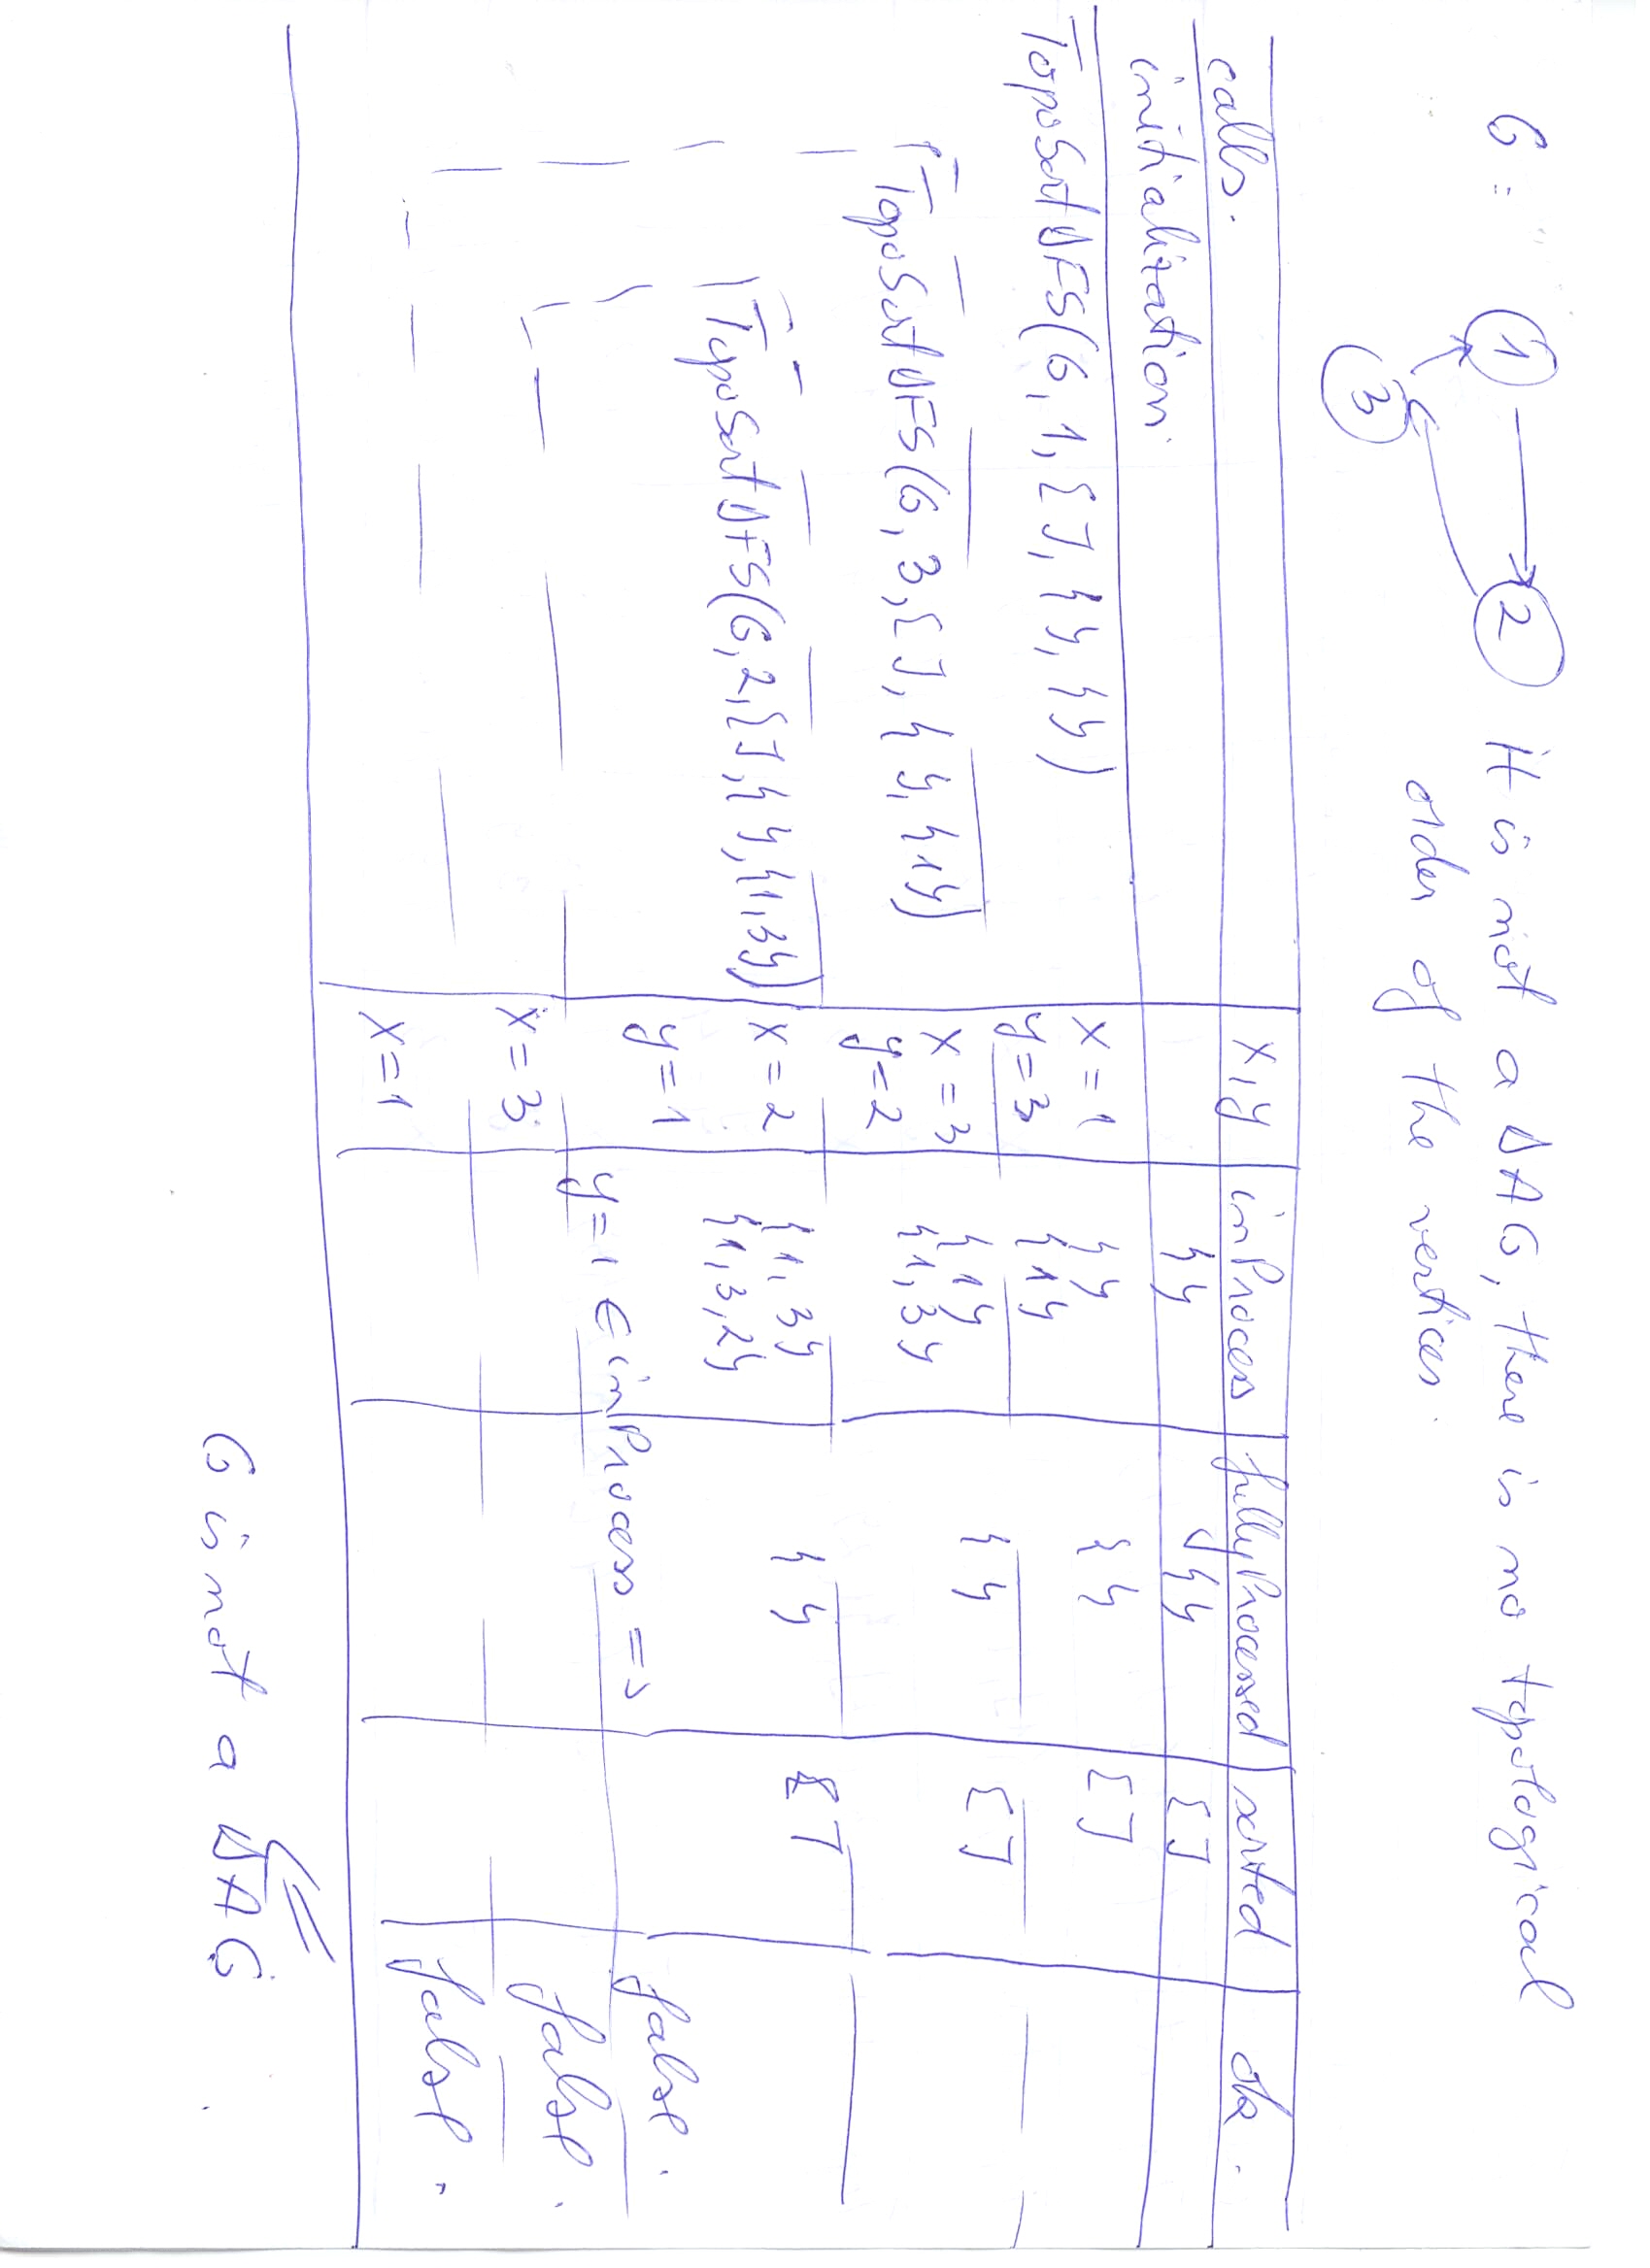 G = 1 2 It is not a DAG, there is no topological
3 order of the vertices.
calls. x, y inProcess fullyProcessed sorted ok.
initialization { } { } [ ]
TopoSortDFS(G, 1, [ ], { }, { }) x = 1 { } { } [ ]
y = 3 {1}
TopoSortDFS(G, 3, [ ], { }, {1}) x = 3 {1} { } [ ]
y = 2 {1, 3}
TopoSortDFS(G, 2, [ ], { }, {1, 3}) x = 2 {1, 3} { } [ ]
y = 1 {1, 3, 2} false.
y = 1 ∈ inProcess ⇒
x = 3 false.
x = 1 false.
G is not a DAG